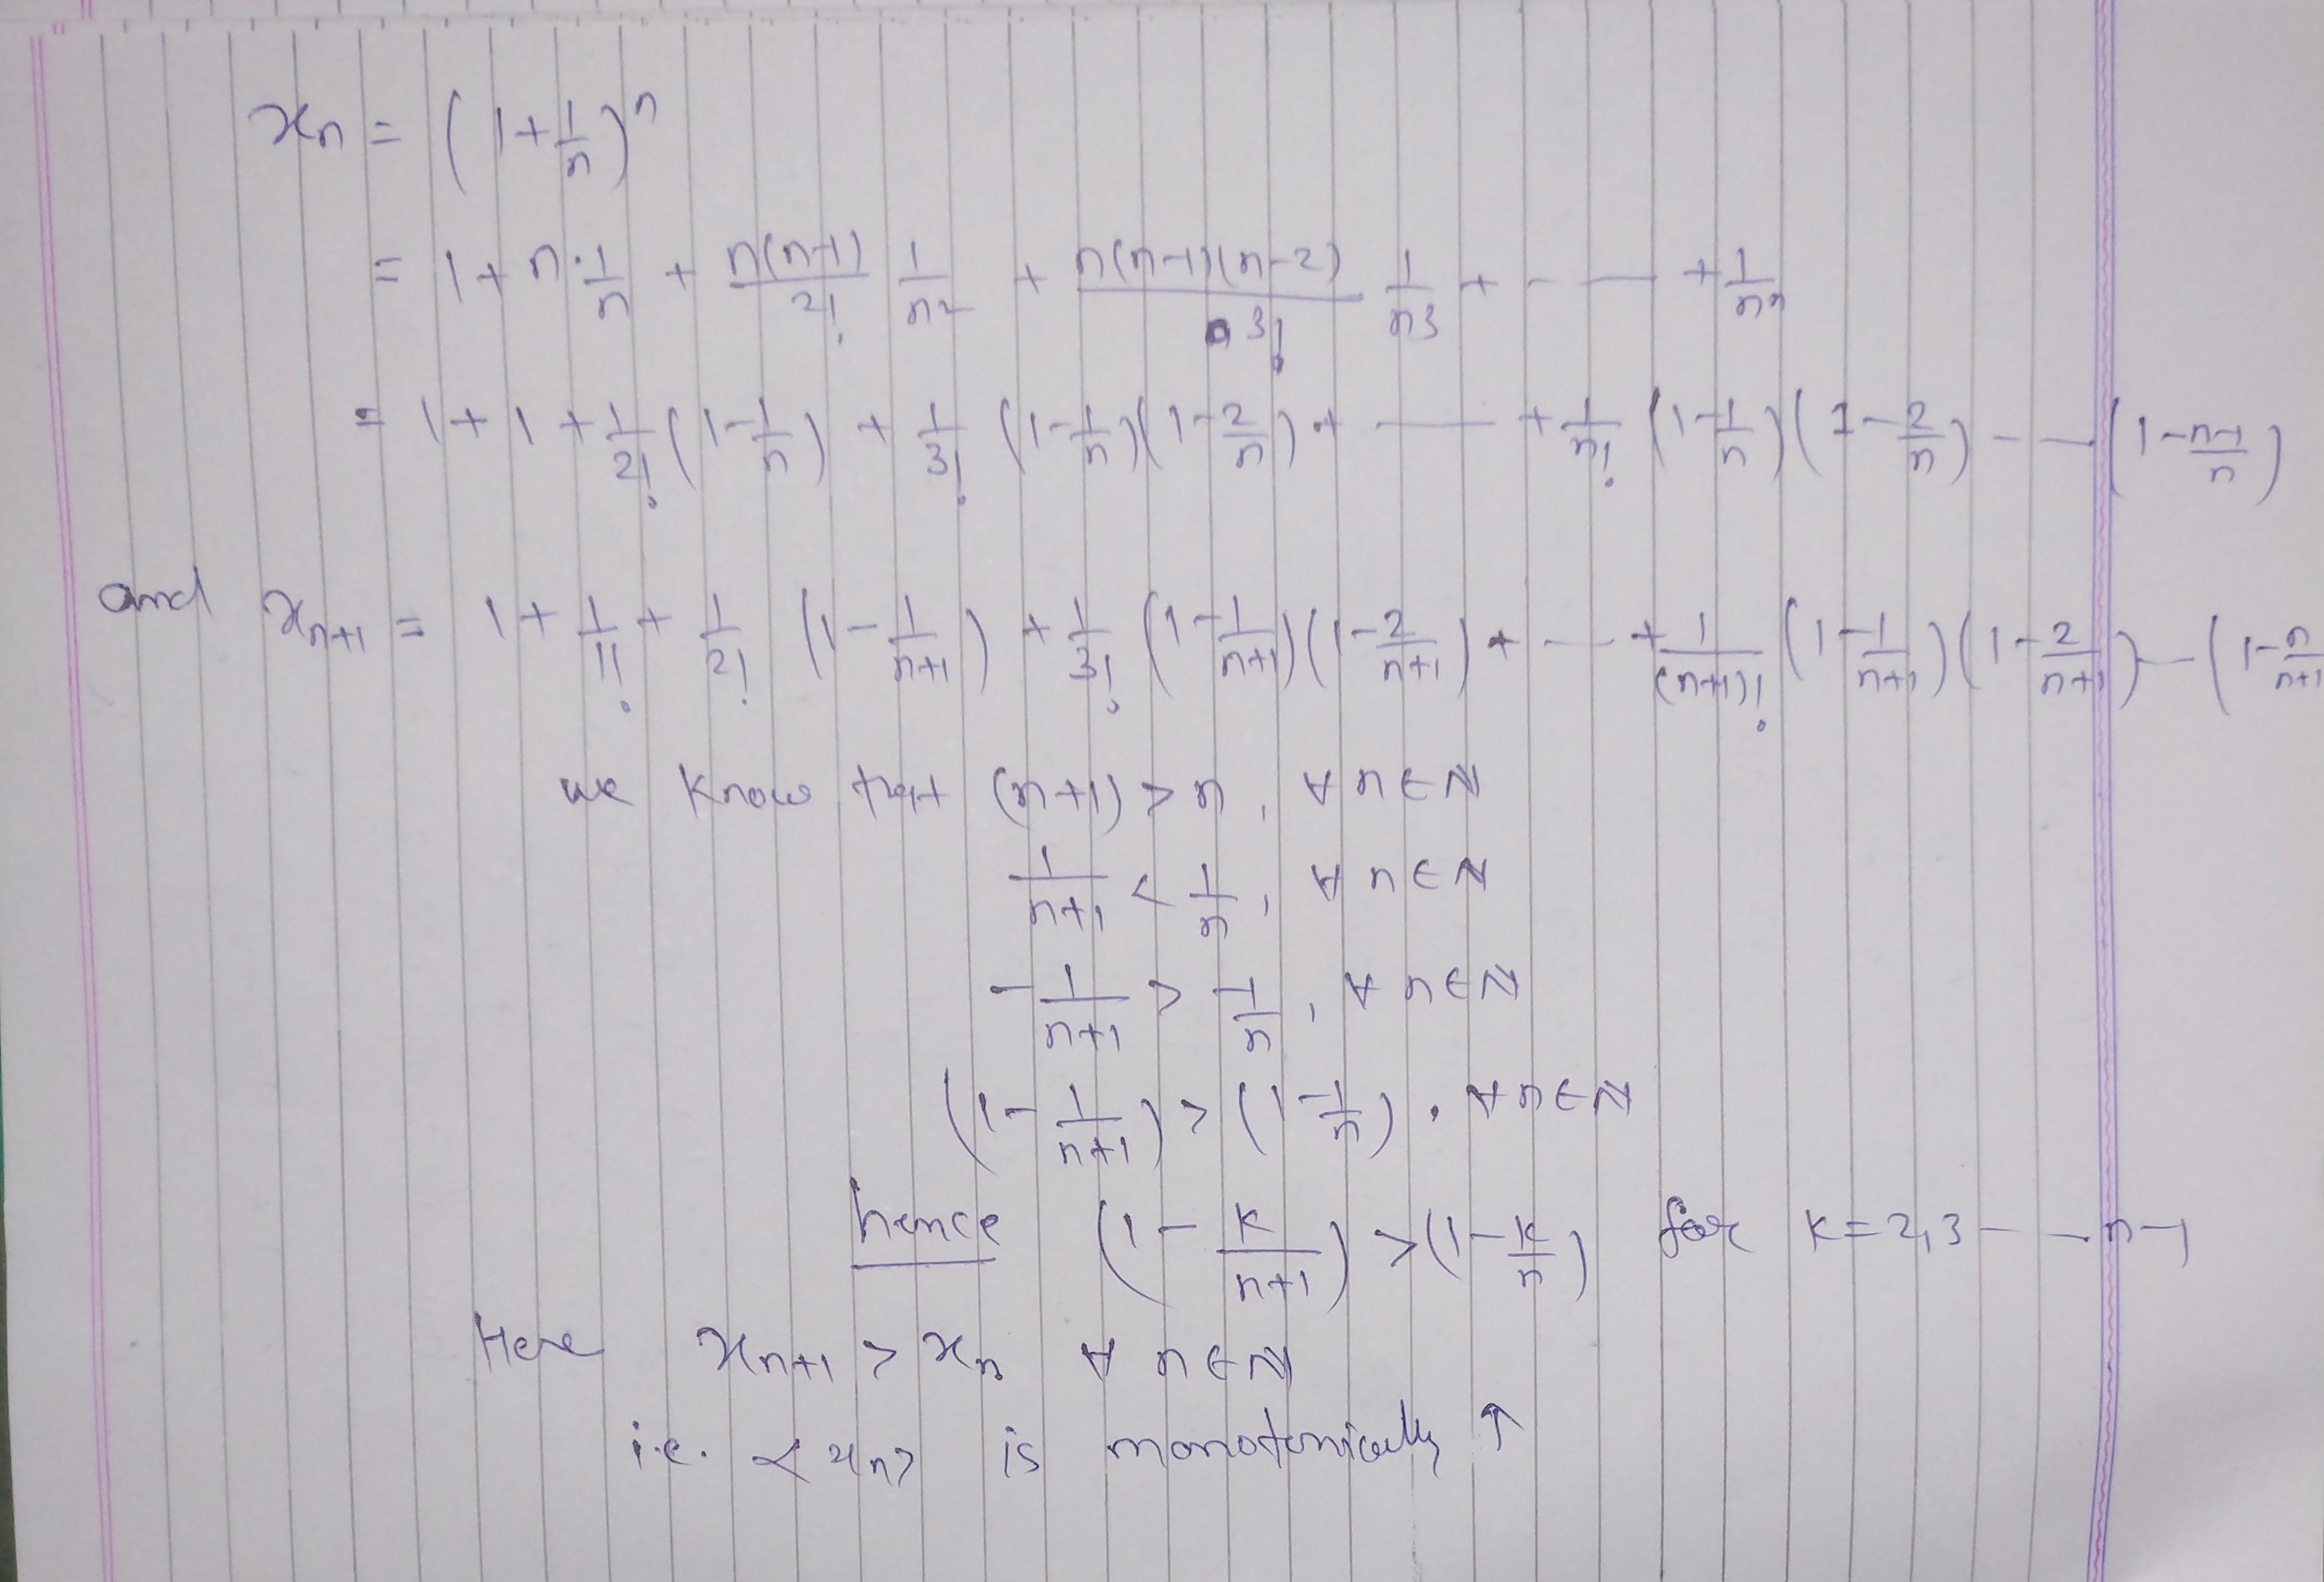 xₙ = (1+1/n)ⁿ
= 1 + n·1/n + n(n-1)/2! 1/n² + n(n-1)(n-2)/3! 1/n³ + - — + 1/nⁿ
= 1 + 1 + 1/2! (1-1/n) + 1/3! (1-1/n)(1-2/n) + —— + 1/n! (1-1/n)(1-2/n) - — (1-n-1/n)
and xₙ₊₁ = 1 + 1/1! + 1/2! (1-1/n+1) + 1/3! (1-1/n+1)(1-2/n+1) + - — + 1/(n+1)! (1-1/n+1)(1-2/n+1) — (1-n/n+1
we know that (n+1) > n, ∀ n ∈ N
1/n+1 < 1/n, ∀ n ∈ N
-1/n+1 > 1/n, ∀ n ∈ N
(1-1/n+1) > (1-1/n). ∀ n ∈ N
hence (1-k/n+1) > (1-k/n) for k = 2,3 - - . n-1
Here xₙ₊₁ > xₙ ∀ n ∈ N
i.e. <xₙ> is monotonically ↑